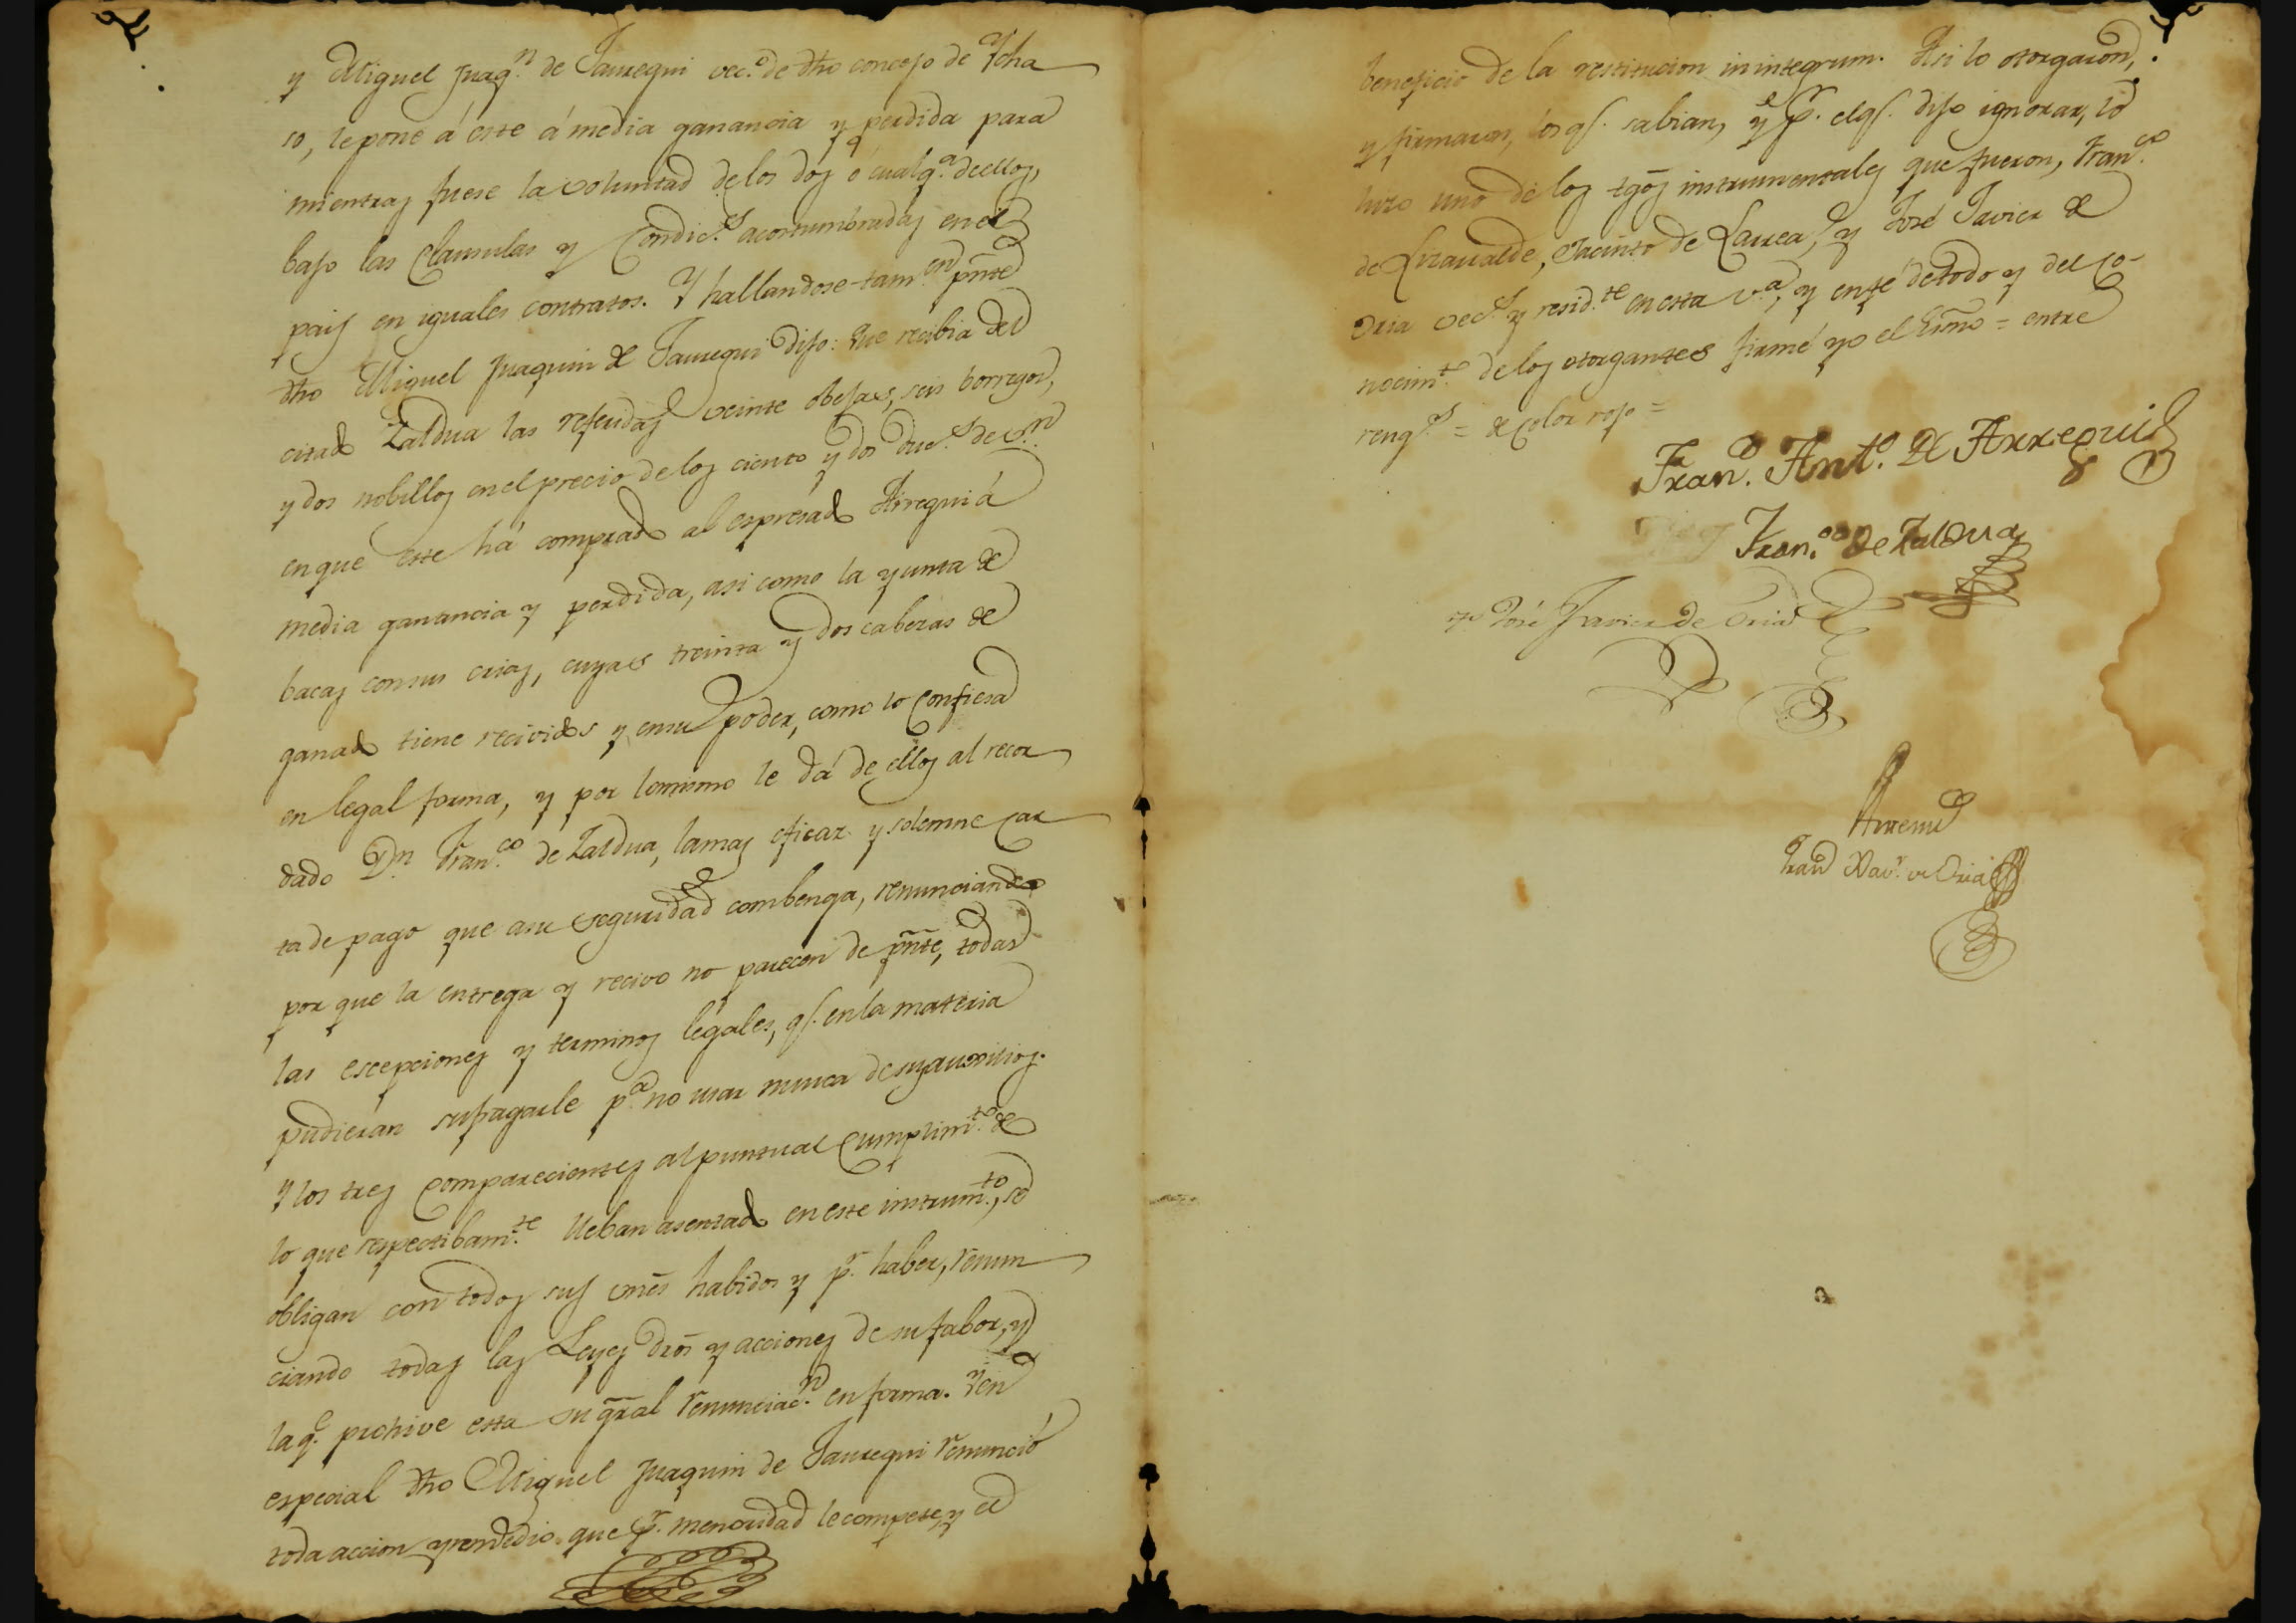 y Miguel Juaqn. de Jauregui vec.o de dho concejo de Ycha
so, le pone á este á media ganancia y perdida para
mientras fuese la voluntad de los dos ó cualq.a de ellos,
bajo las Clausulas y Condic.s acostumbradas en el
pais en iguales contratos. Y hallandose tam.en pñte
dho Miguel Juaquin de Jauregui dijo: Que recibia del
citado Zaldua las referidas veinte obejas, seis borregos,
y dos nobillos en el precio de los ciento y dos duc.s de v.n
en que este há comprado al espresado Arregui á
media ganancia y perdida, asi como la yunta de
bacas con sus crias, cuyas treinta y dos cabezas de
ganado tiene recividos y en su poder, como lo confiesa
en legal forma, y por lo mismo le dá de ellos al recor
dado Dn. Fran.co de Zaldua, la mas eficaz y solemne car
ta de pago que a su seguridad combenga, renunciando
por que la entrega y recivo no parecen de pñte, todas
las escepciones y terminos legales, q.e en la materia
pudieran sufragarle p.a no usar nunca de sus auxilios.
Y los tres comparecientes al puntual cumplim.to de
lo que respectibam.te lleban asentado en este instrum.to, se
obligan con todos sus vnēs habidos y p.r haber, renun
ciando todas las Leyes dros y acciones de su fabor, y
la q.e prohive esta su gral renunciac.n en forma. Y en
especial dho Miguel Juaquin de Jauregui renunció
toda accion y remedio que p.r menoridad le compete, y el
beneficio de la restitucion in integrum. Asi lo otorgaron,
y firmaron, los q.e sabian, y p.r el q.e dijo ignorar, lo
hizo uno de los tgos instrumentales que fueron, Fran.co
de Lizaralde, Jacinto de Laurea, y José Javier de
Oria vec.s y resid.te en esta v.a, y en fé de todo y del co-
nocim.to de los otorgantes firmé yo el Esno = entre
reng.s = de color rojo =
Fran.co Ant.o de Arregui
Fran.co de Zaldua
tgo José Javier de Oria
Ante mi
Fran.co Xav.r de Oria